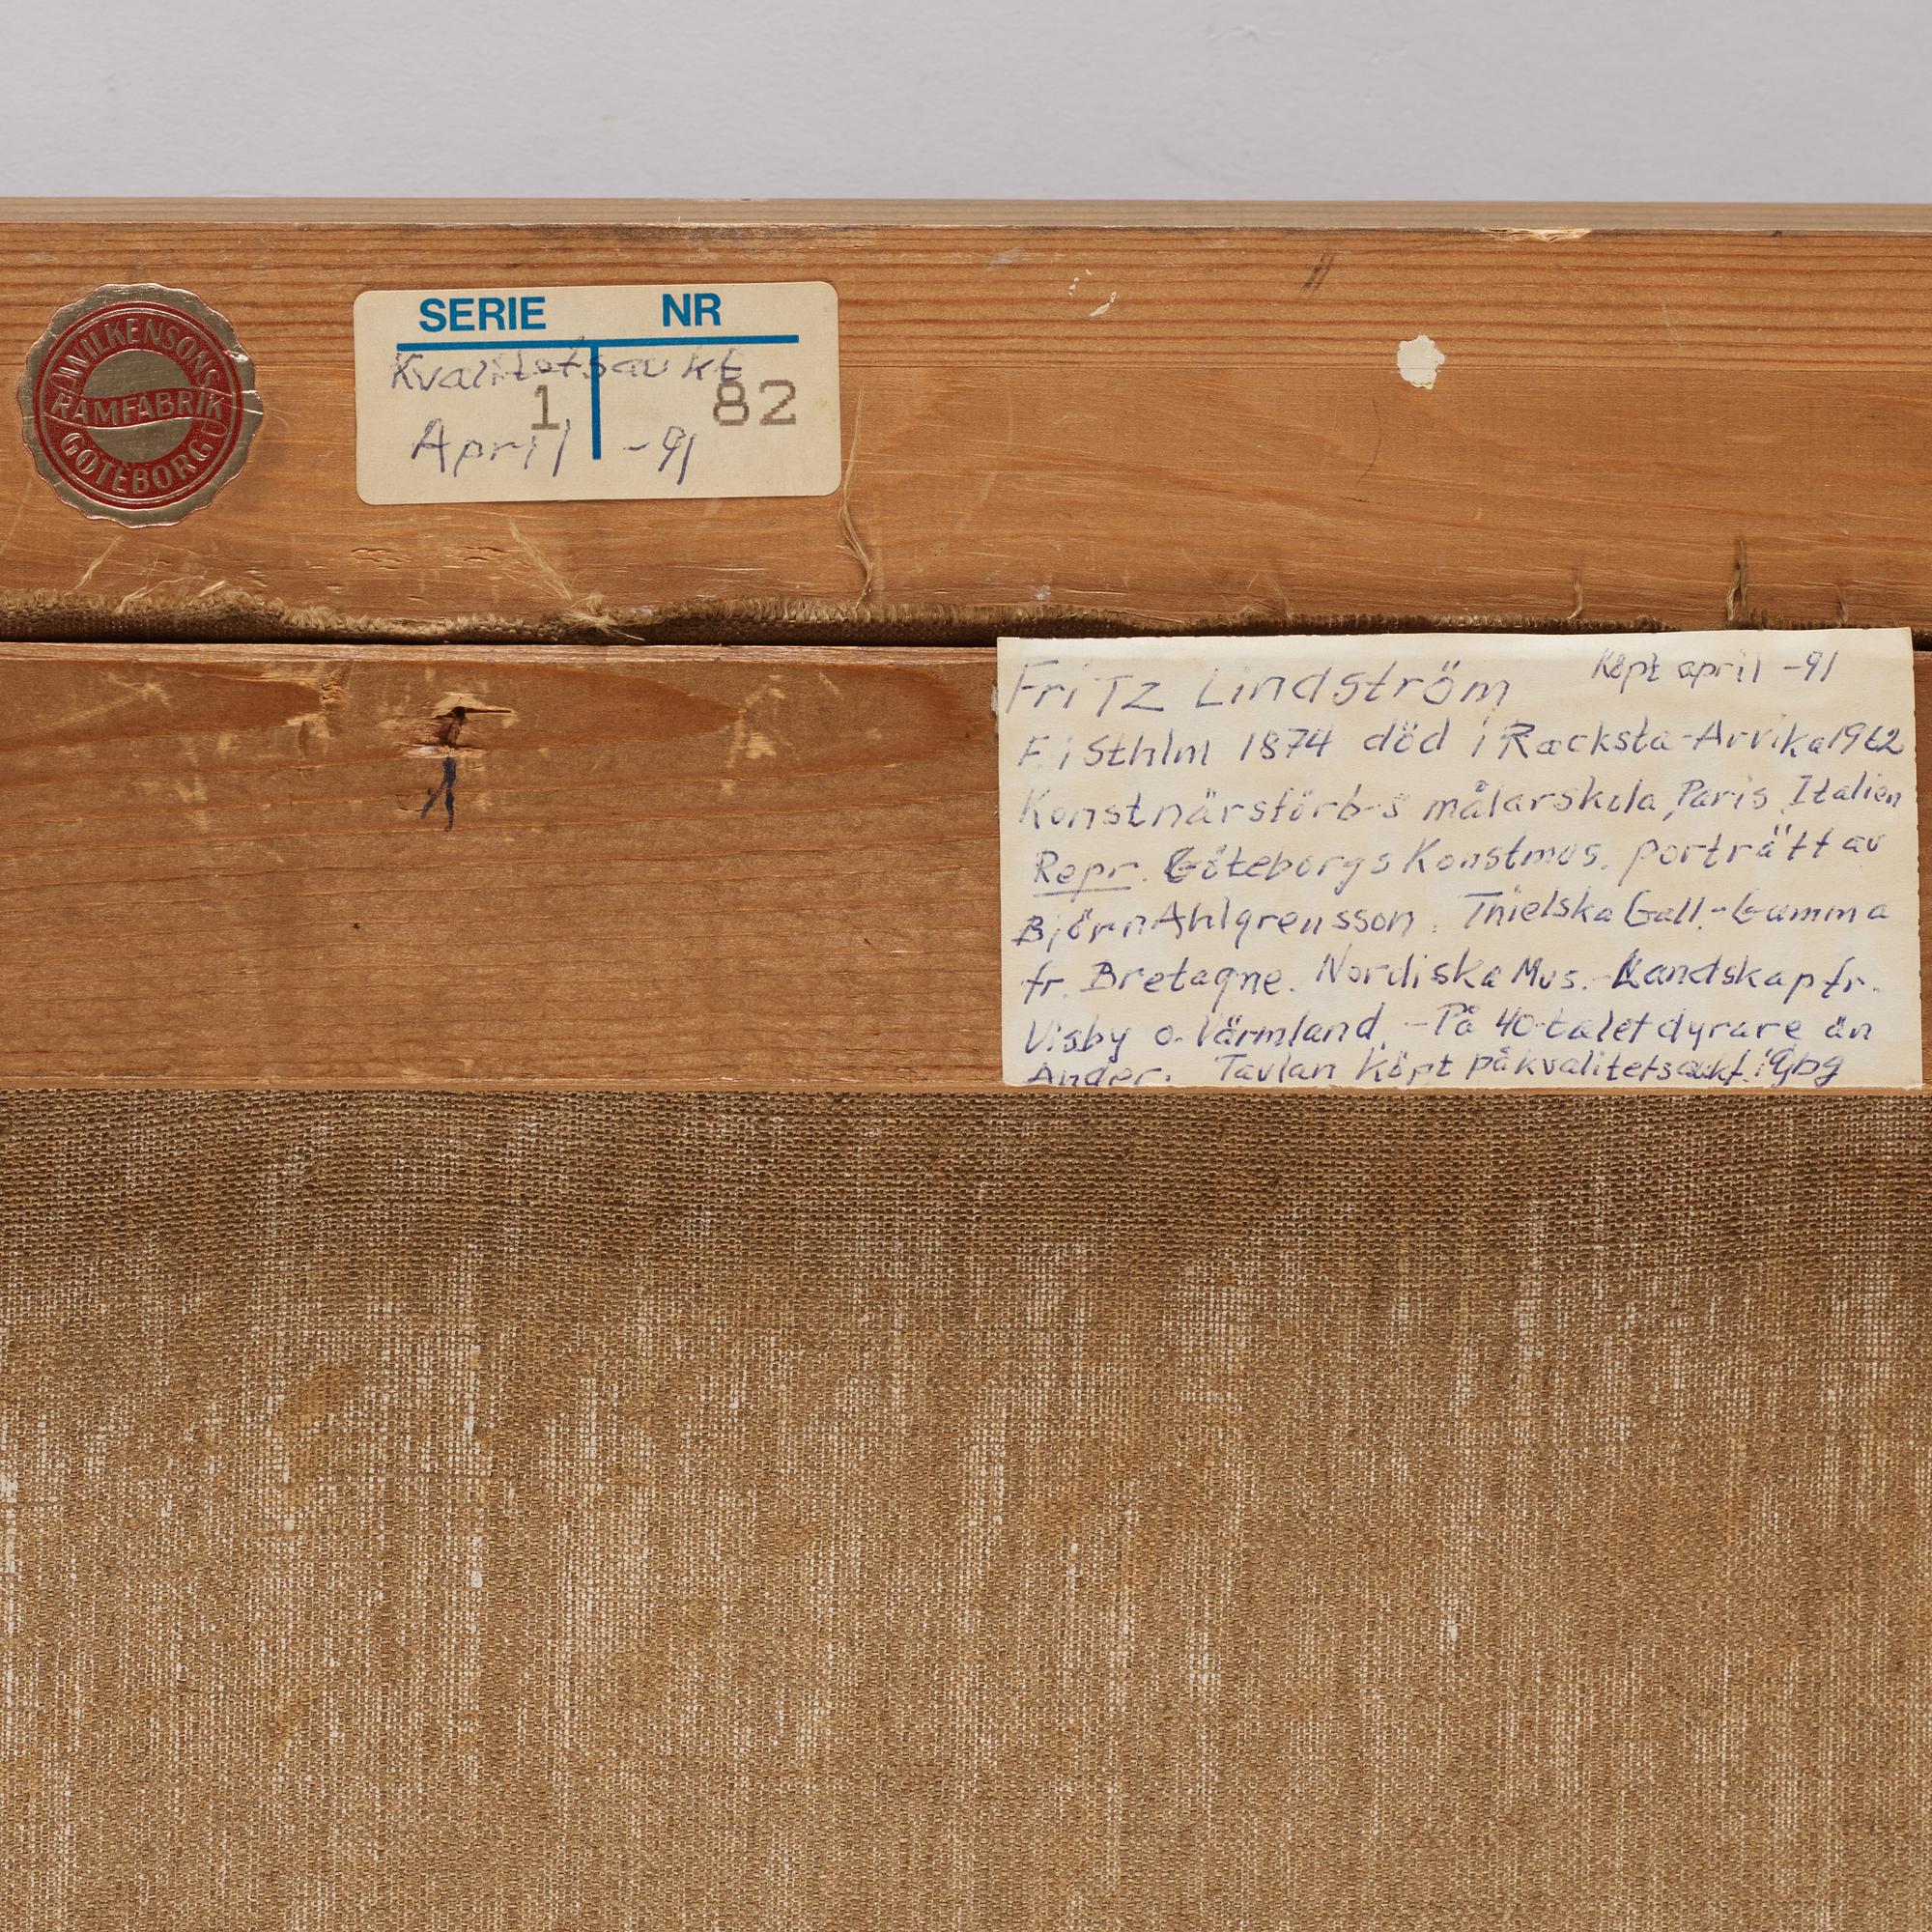 WILKENSONS
RAMFABRIK
GÖTEBORG
SERIE NR
Kvalitetsaukt
1 82
April -91
1
Fritz Lindström Köpt april -91
F i Sthlm 1874 död i Racksta-Arvika 1962
Konstnärsförb-s målarskola, Paris, Italien
Repr. Göteborgs Konstmus. porträtt av
Björn Ahlgrensson. Thielska Gall.-Gumma
fr. Bretagne. Nordiska Mus.-Landskap fr.
Visby o. Värmland. -På 40-talet dyrare än
Ander. Tavlan Köpt på kvalitetsaukt. i Gbg